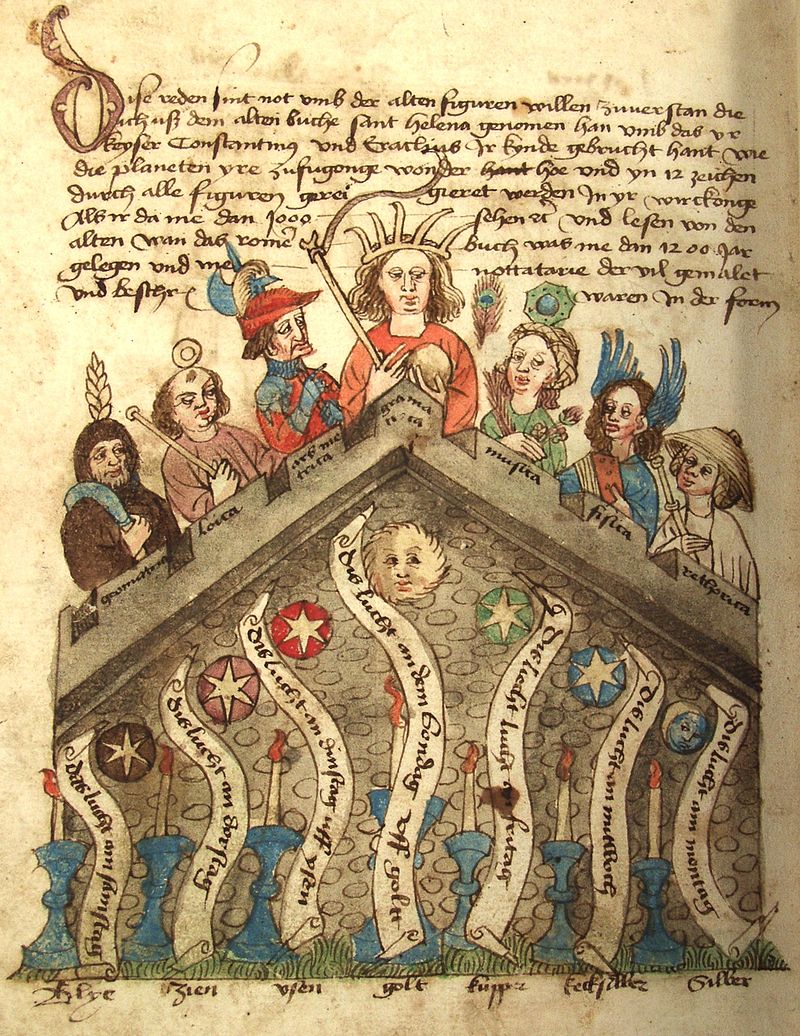 Dise reden sint not umb der alten figuren willen zuverstan die
ich uß dem alten buche sant Helena genomen han umb das yr
keyser Constantinus und Eraclius Ir kynde gebrucht hant wie
die planeten yre zufugonge von der hant hoe und yn 12 zeichen
durch alle figuren gerei gieret werden In yr wirckonge
Als ir da me dan 1000 sehen und lesen von den
alten wan das rome buch was me dan 1200 Jar
gelegen und me nottatarie der vil gemalet
und beschr waren In der form
geometria
loica
arsme
trica
grama
tica
musica
fisica
rethorica
dis lucht am samstag
dis lucht an dorstag
dis lucht an dinstag uff ysen
dis lucht an dem sondag uff golt
dis licht lucht an fritag
dis lucht am mitwoch
dis lucht am montag
Blye zien ysen golt kupper kecksilber Silber